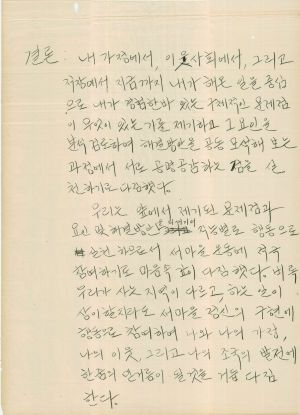 결론: 내 가정에서, 이웃사회에서, 그리고
직장에서 지금까지 내가 해온 일을 중심
으로 내가 경험한바 있는 구체적인 문제점
이 무엇이 있는가를 제기하고 그 요인을
분석 검토하여 해결방안을 공동 모색해 보는
과정에서 서로 공명공감하는 점을 실
천하기로 다짐했다.
우리는 앞에서 제기된 문제점과
요인 및 해결방안을 직분별로 행동으로
실천하므로서 새마을 운동에 적극
참여하기로 마음속 깊이 다짐했다. 비록
우리가 사는 지역이 다르고, 하는 일이
상이할지라도 새마을 정신의 구현에
행동으로 참여하여 나와 나의 가정,
나의 이웃, 그리고 나의 조국의 발전에
한줌의 밑거름이 될것을 거듭 다짐
한다.